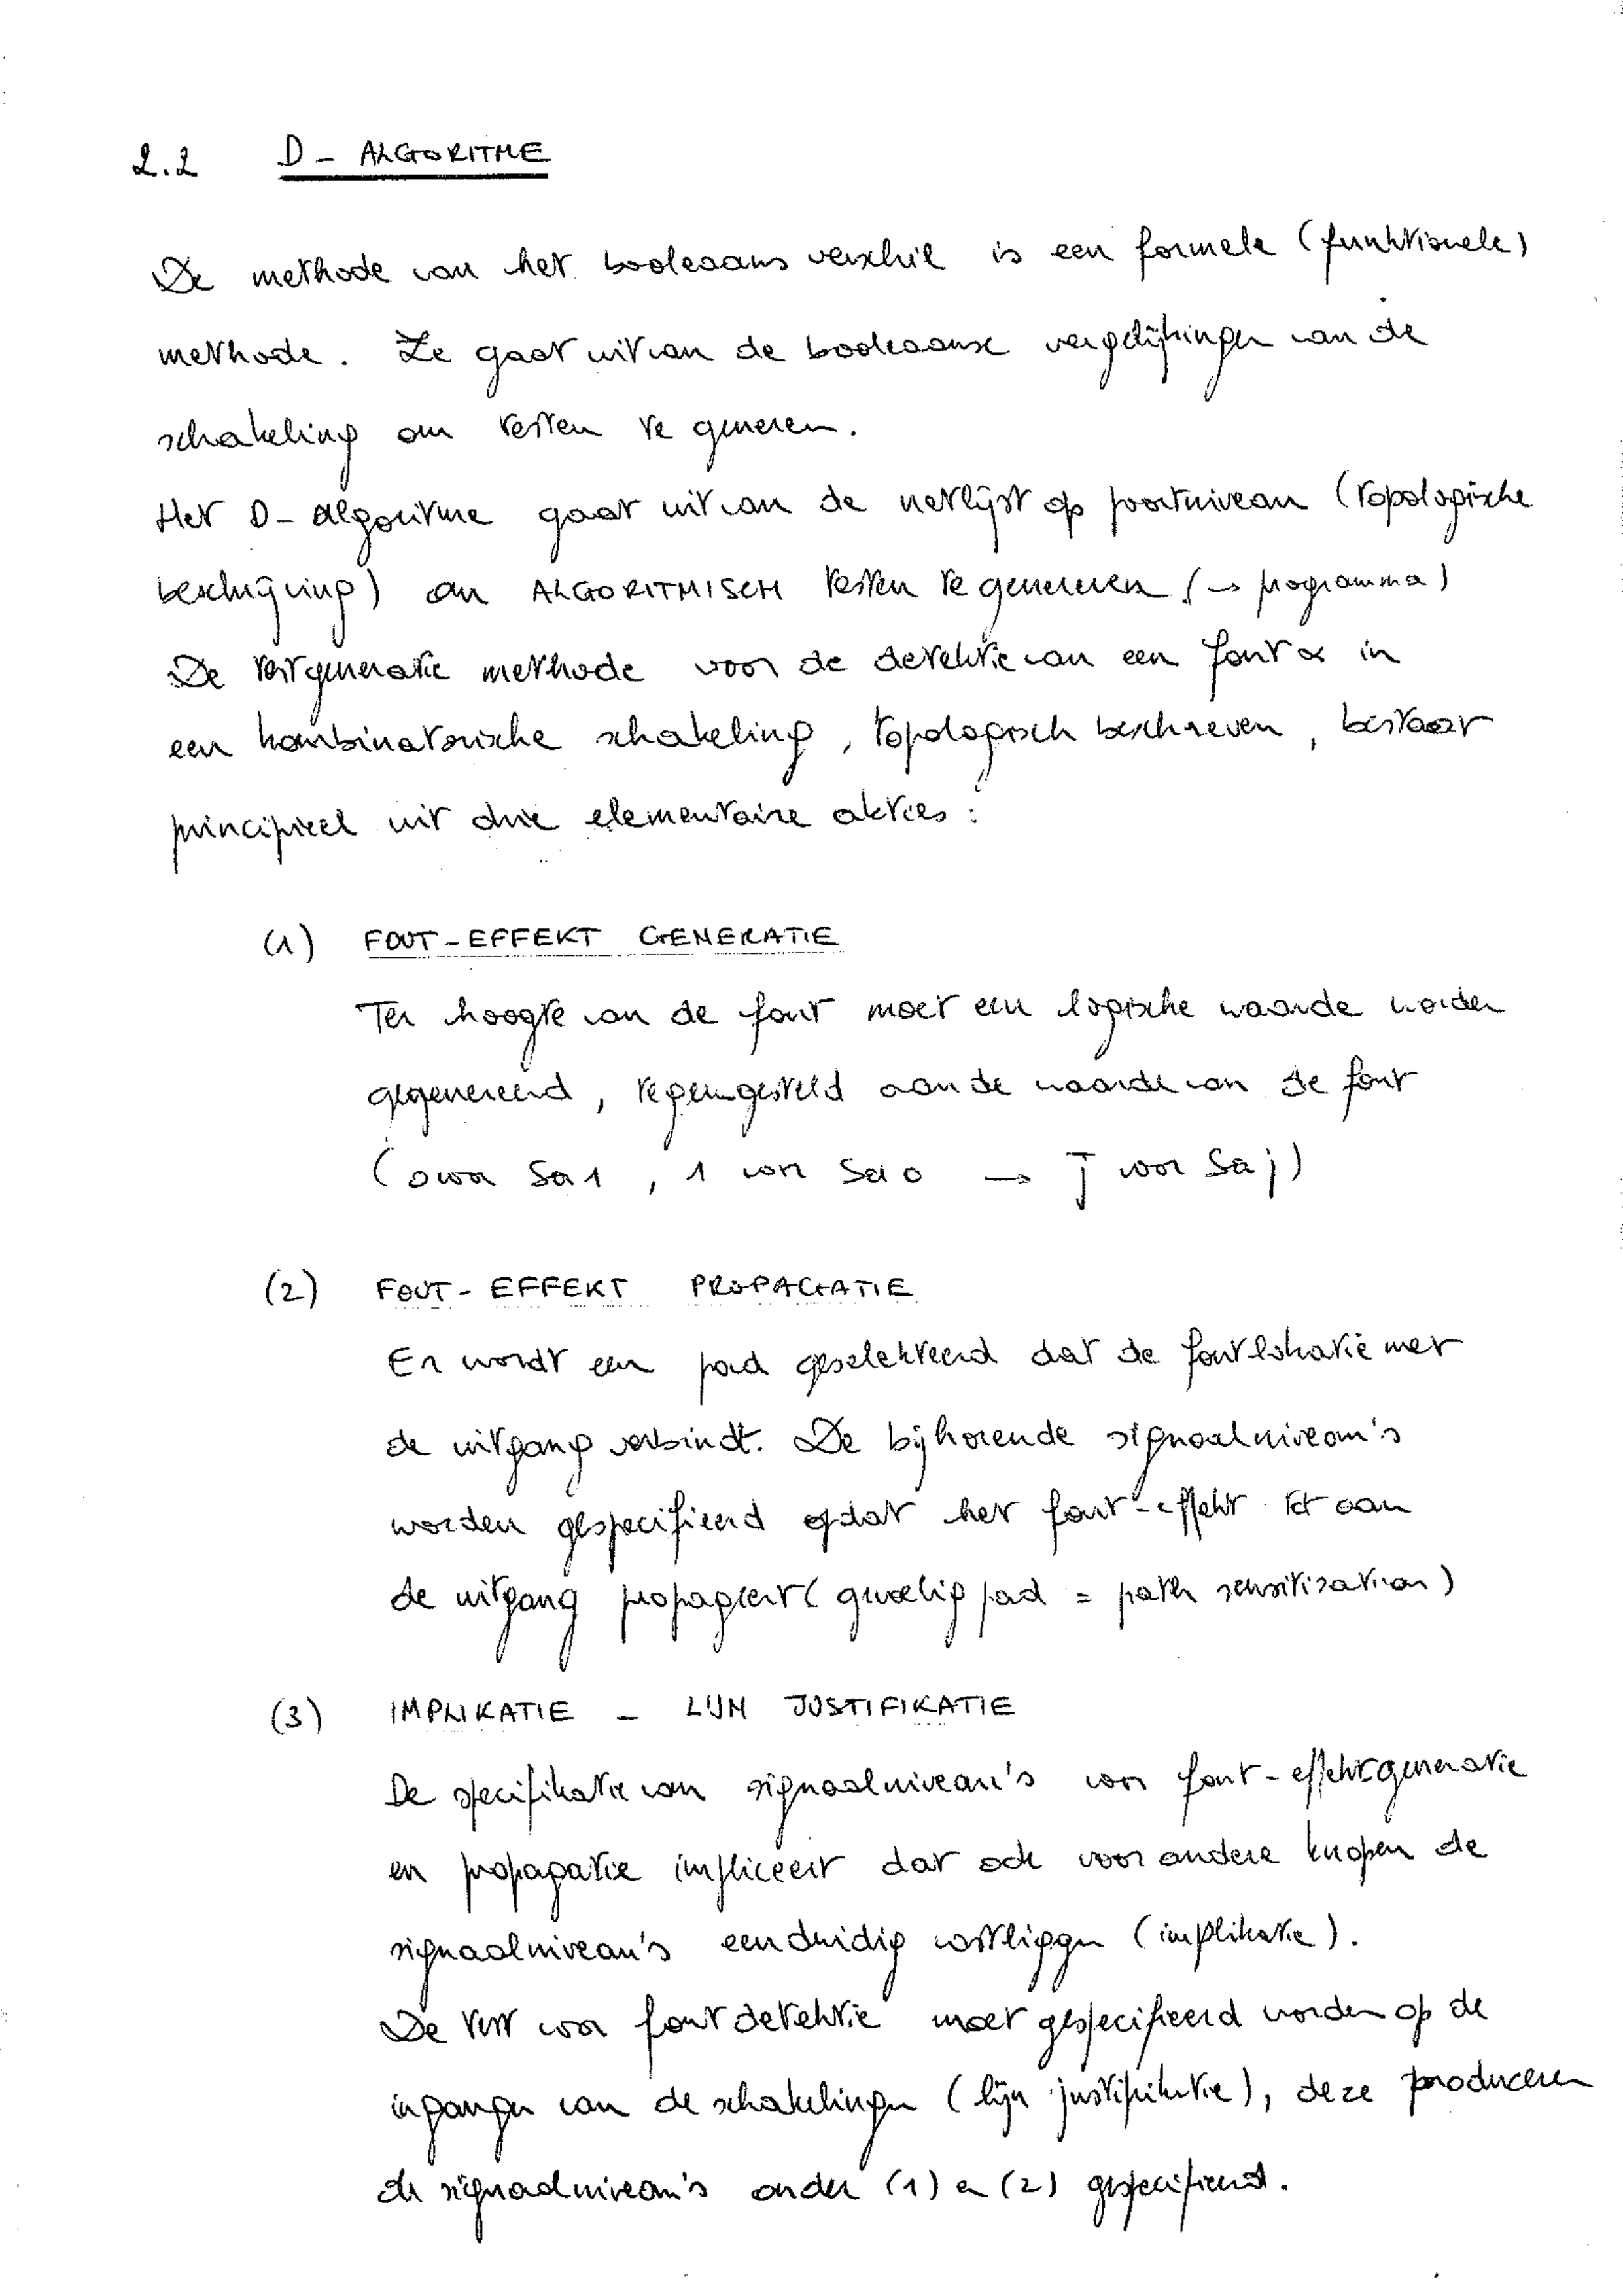 2.2 D - ALGORITME
De methode van het booleaans verschil is een formele (funktionele)
methode. Ze gaat uit van de booleaanse vergelijkingen van de
schakeling om testen te generen.
Het D-algoritme gaat uit van de netlijst op poortniveau (topologische
beschrijving) om ALGORITMISCH testen te genereren (→ programma)
De testgeneratie methode voor de detektie van een fout α in
een kombinatorische schakeling, topologisch beschreven, bestaat
principieel uit drie elementaire akties:
(1) FOUT-EFFEKT GENERATIE
Ter hoogte van de fout moet een logische waarde worden
gegenereerd, tegengesteld aan de waarde van de fout
(0 voor Sa1, 1 voor Sa0 → j̅ voor Saj)
(2) FOUT-EFFEKT PROPAGATIE
Er wordt een pad geselekteerd dat de foutlokatie met
de uitgang verbindt. De bijhorende signaalniveau's
worden gespecifieerd opdat het fout-effekt tot aan
de uitgang propageert (gevoelig pad = path sensitisation)
(3) IMPLIKATIE - LIJN JUSTIFIKATIE
De specifikatie van signaalniveau's voor fout-effektgeneratie
en propagatie impliceert dat ook voor andere knopen de
signaalniveau's eenduidig vastliggen (implikatie).
De test voor foutdetektie moet gespecifieerd worden op de
ingangen van de schakelingen (lijn justifikatie), deze produceren
de signaalniveau's onder (1) en (2) gespecifieerd.